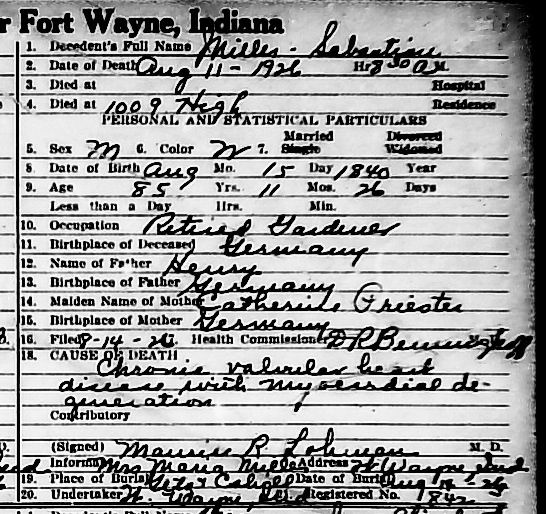 r Fort Wayne, Indiana
1. Decedent's Full Name Miller - Sebastian
2. Date of Death Aug 11 - 1926 Hr 8 30 A.M.
3. Died at Hospital
4. Died at 1009 High Residence
PERSONAL AND STATISTICAL PARTICULARS
Married Divorced
5. Sex M 6. Color W 7. Single Widowed
8. Date of Birth Aug Mo. 15 Day 1840 Year
9. Age 85 Yrs. 11 Mos. 26 Days
Less than a Day Hrs. Min.
10. Occupation Retired Gardener
11. Birthplace of Deceased Germany
12. Name of Father Henry
13. Birthplace of Father Germany
14. Maiden Name of Mother Catherine Priester
15. Birthplace of Mother Germany
16. Filed 8-14-26 Health Commissioner
18. CAUSE OF DEATH
Chronic valvular heart
disease with myocardial de-
generation
Contributory
(Signed) Maurice R Lohman M. D.
Informant Mrs Maria Miller Address Ft Wayne Ind
19. Place of Burial Date of Burial Aug 14-26
20. Undertaker Ft. Wayne, Ind Registered No. 842